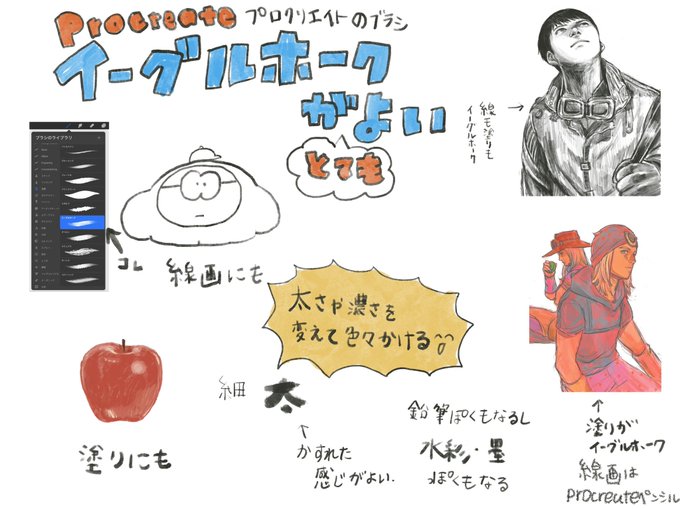 Procreate プロクリエイトのブラシ
イーグルホーク
がよい
とても
線も塗りも
イーグルホーク
ブラシのライブラリ
コレ
線画にも
太さや濃さを
変えて色々かける
細 太
かすれた
感じがよい.
塗りにも
鉛筆ぽくもなるし
水彩・墨
ぽくもなる
塗りが
イーグルホーク
線画は
procreateペンシル